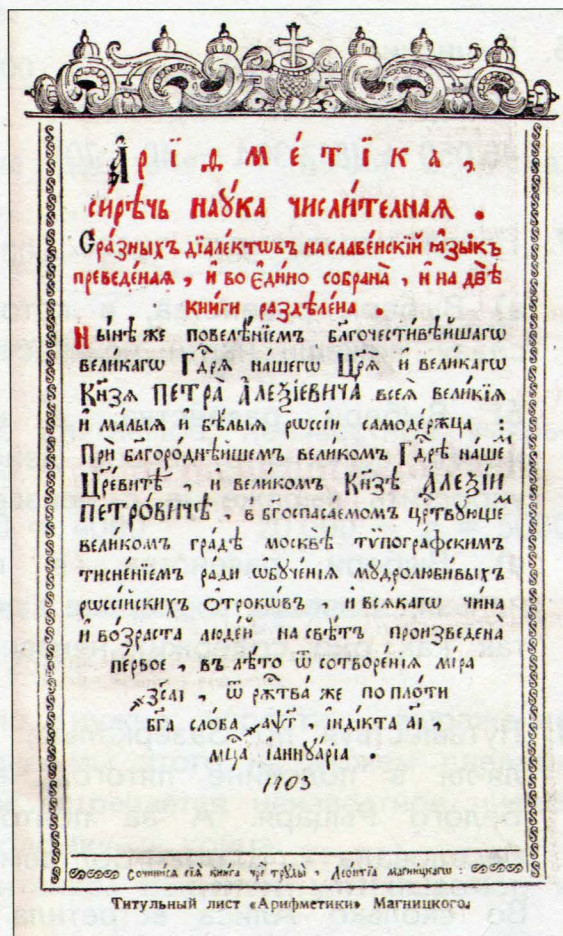 А҆рїѳме́тїка,
си́рѣчь наꙋ́ка числи́телнаѧ.
С̾ ра́зныхъ дїале́ктѡвъ на славе́нскїй ꙗ҆зы́къ
преведе́наѧ, и҆ во є҆ди́но собрана̀, и҆ на двѣ̀
кни́ги раздѣле́на.
Ны́нѣ же повелѣ́нїемъ благочести́вѣйшагѡ
вели́кагѡ Гдⷭ҇рѧ на́шегѡ Цр҃ѧ̀ и҆ вели́кагѡ
Кнѧ́зѧ ПЕТРА̀ А҆ЛЕѮІ́ЕВИЧА всеѧ̀ вели́кїѧ
и҆ ма́лыѧ и҆ бѣ́лыѧ рѡссі́и самоде́ржца:
При благоро́днѣйшемъ вели́комъ Гдⷭ҇рѣ на́шеⷨ
Цр҃е́витѣ, и҆ вели́комъ Кнѧ́зѣ А҆ЛЕѮІ́И
ПЕТРО́ВИЧѢ, в̾ бг҃оспаса́емомъ црⷭ҇твꙋ́ющеⷨ
вели́комъ гра́дѣ москвѣ̀ тѷпогра́фскимъ
тисне́нїемъ ра́ди ѡ҆бꙋче́нїѧ мꙋдролюби́выхъ
рѡссі́йскихъ ѻ҆́трокѡвъ, и҆ всѧ́кагѡ чи́на
и҆ во́зраста люде́й на свѣ́тъ произведена̀
пе́рвое, въ лѣ́то ѿ сотворе́нїѧ мі́ра
҂зсаі, ѿ ржⷭ҇тва̀ же по пло́ти
бг҃а сло́ва ҂аѱг҃, і҆нді́кта аі҃,
мцⷭ҇а і҆аннꙋа́рїа.
1703
Сочини́сѧ сїѧ̀ кни́га чрⷥе трꙋды̀, Лео́нтїа магни́цкагѡ:
Титульный лист «Арифметики» Магницкого.